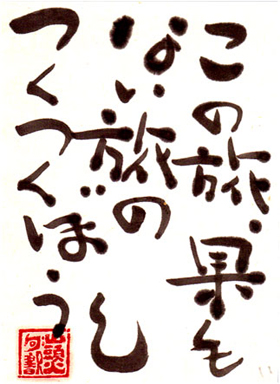 この旅、果も
ない旅の
つくつくぼう
し